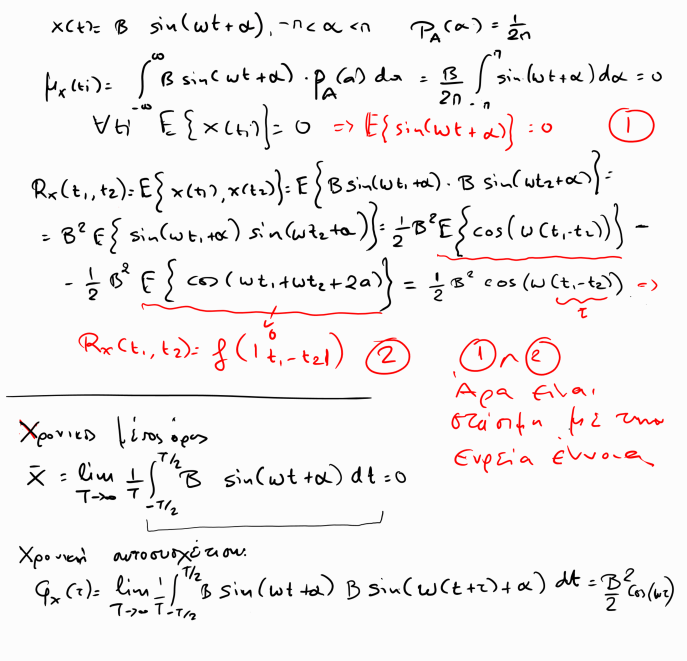 x(t)= B sin(ωt+α), -π<α<π P_A(α) = 1/2π
μ_x(ti)= ∫_{-∞}^{∞} B sin(ωt+α) · P_A(α) dα = B/2π ∫_{-π}^{π} sin(ωt+α)dα = 0
∀ti E{x(ti)}= 0 => E{sin(ωt+α)} = 0 ①
R_x(t₁,t₂)= E{x(t₁),x(t₂)}= E{B sin(ωt₁+α) · B sin(ωt₂+α)}=
= B² E{sin(ωt₁+α) sin(ωt₂+α)}= 1/2 B² E{cos(ω(t₁-t₂))} -
- 1/2 B² E{cos(ωt₁+ωt₂+2α)} = 1/2 B² cos(ω(t₁-t₂)) =>
0 τ
R_x(t₁,t₂)= f(|t₁-t₂|) ② ①∩②
Άρα είναι
στάσιμη με την
Ευρεία έννοια
Χρονικός μέσος όρος
x̄ = lim_{T→∞} 1/T ∫_{-T/2}^{T/2} B sin(ωt+α) dt = 0
Χρονική αυτοσυσχέτιση:
φ_x(τ)= lim_{T→∞} 1/T ∫_{-T/2}^{T/2} B sin(ωt+α) B sin(ω(t+τ)+α) dt = B²/2 cos(ωτ)